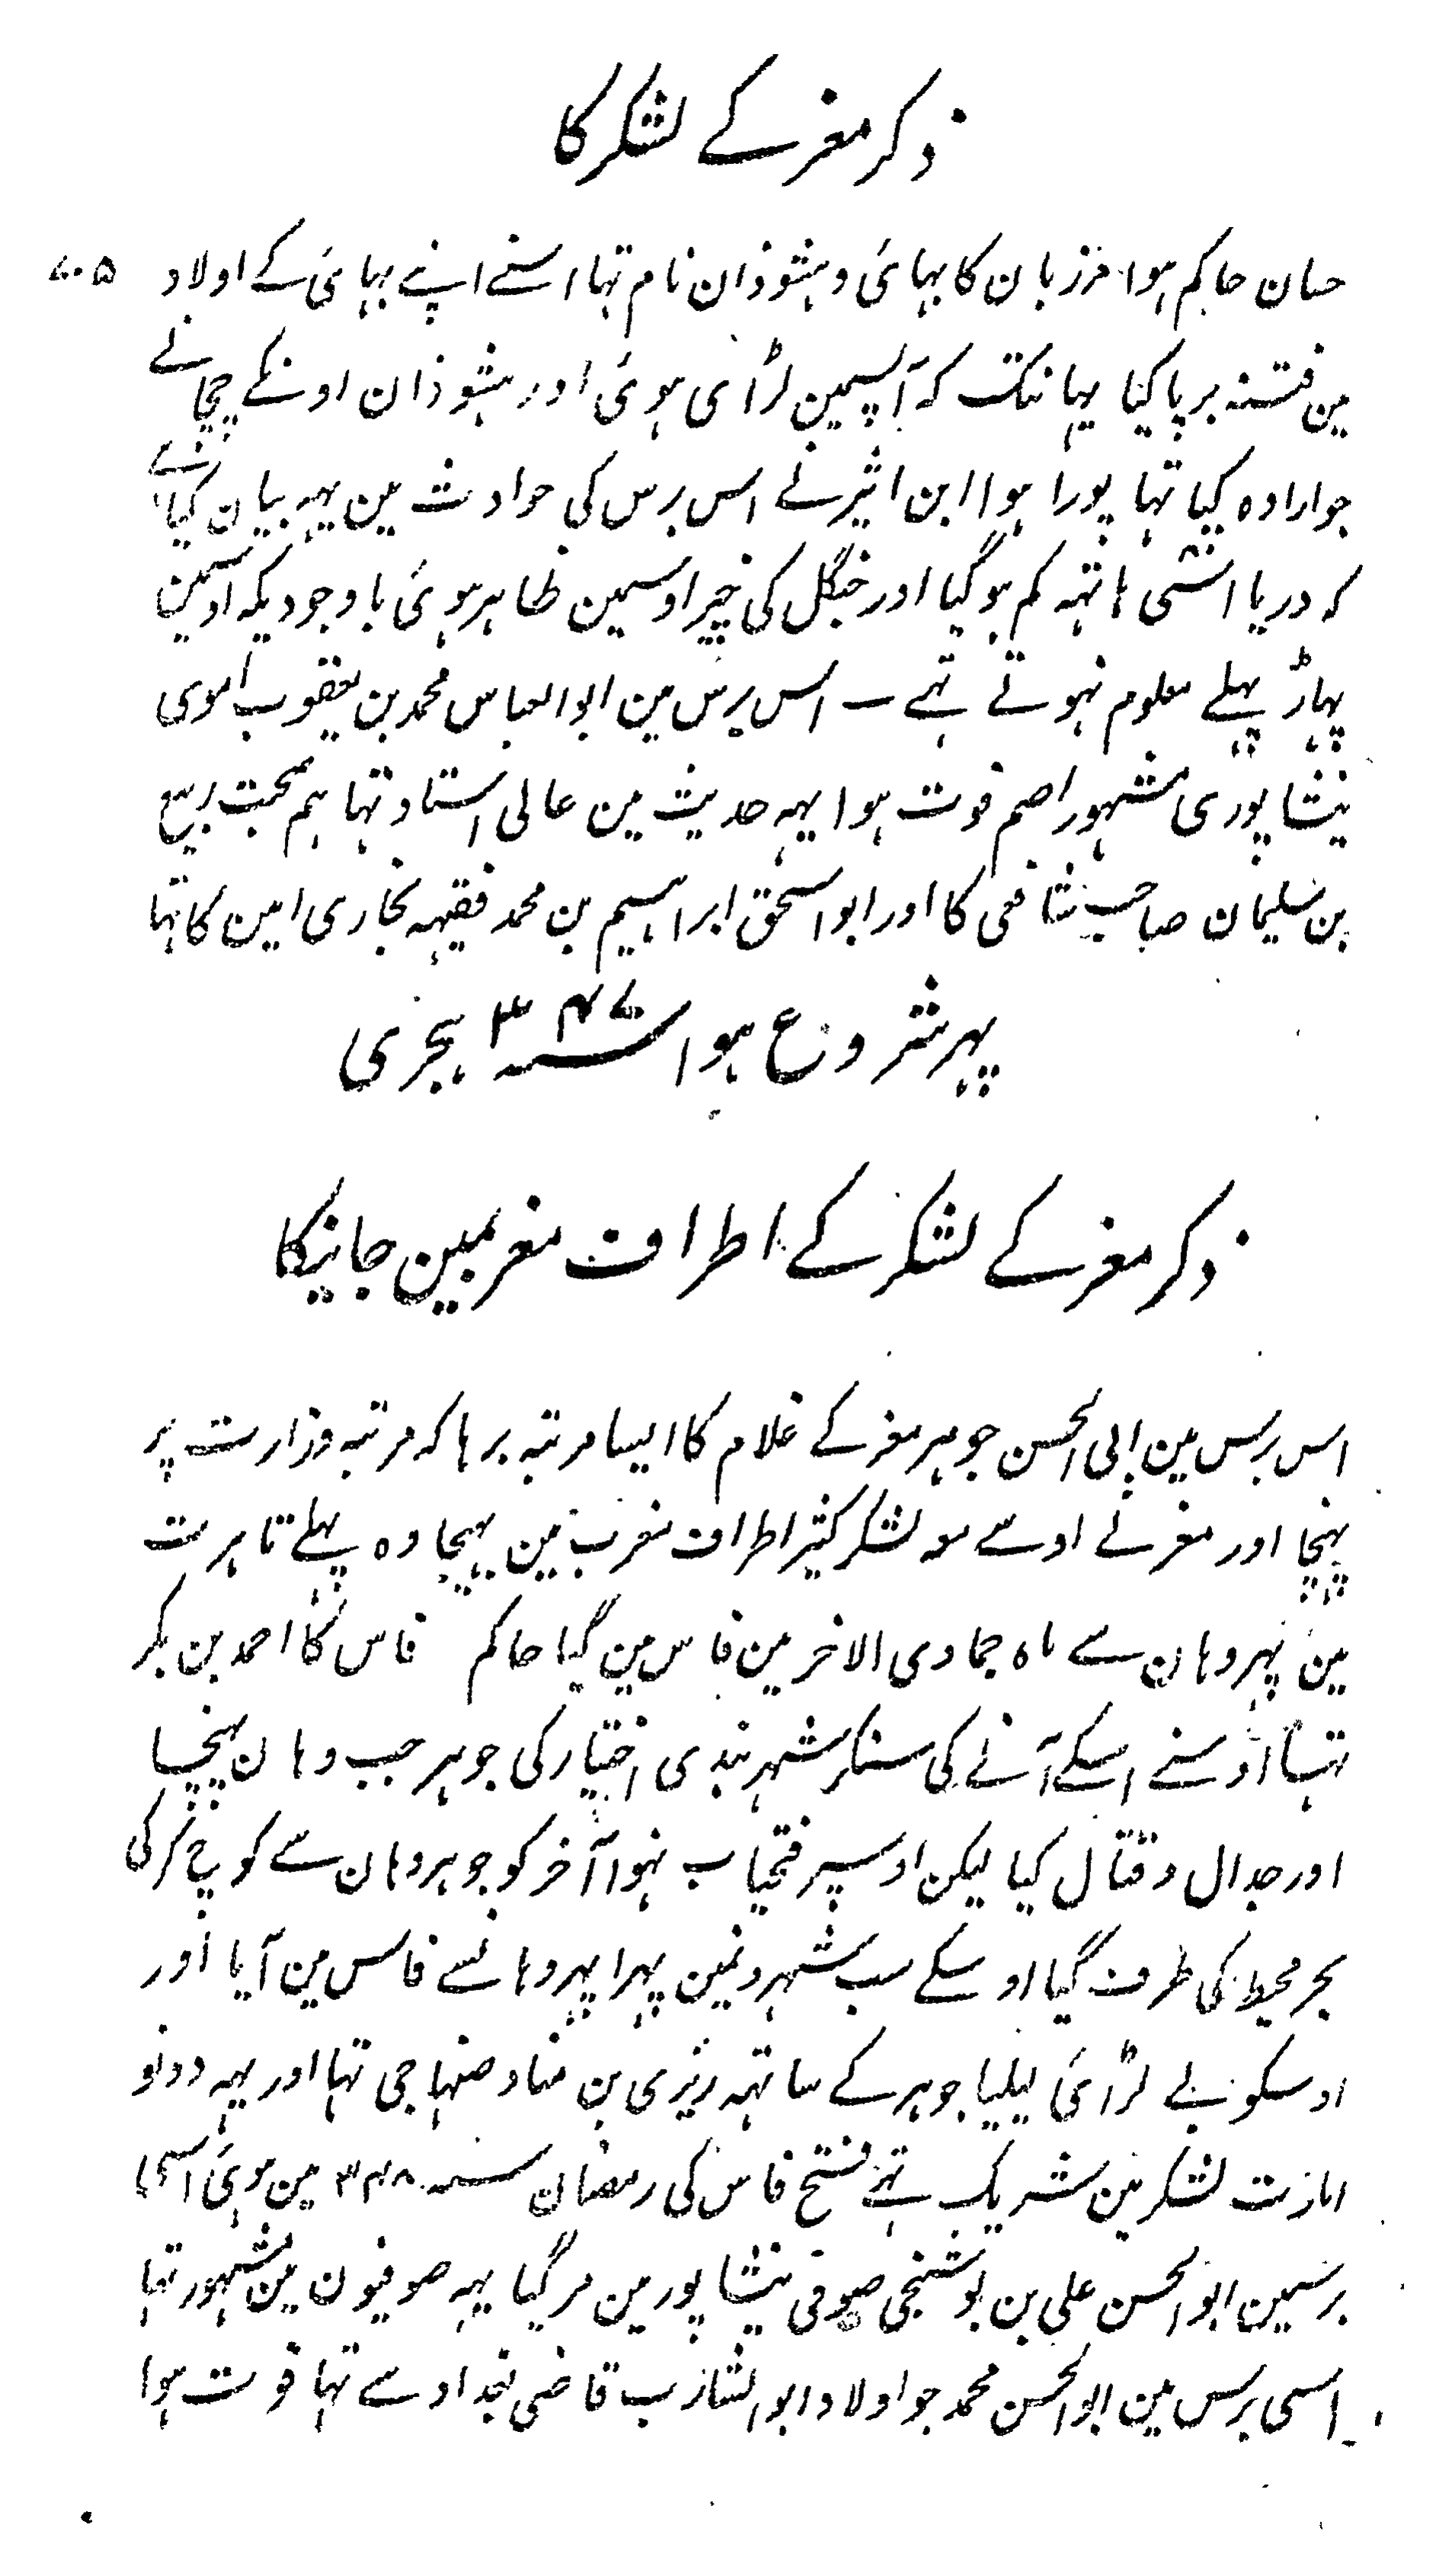 ذکر معز کے لشکر کا
حسان حاکم ہوا مرزبان کا بہائی وہشوذان نام تہا اسنے اپنے بہائی کے اولاد ۷۰۵
مین فتنہ برپا کیا یہانتک کہ آپسمین لڑائی ہوئی اور ہشوذان اونکے چچا نے
جو ارادہ کیا تہا پورا ہوا ابن اثیر نے اس برس کی حوادث مین یہہ بیان کیا ہے
کہ دریا اسّی ہاتہہ کم ہو گیا اور جنگل کی خبر اوسمین ظاہر ہوئی باوجودیکہ اوسمین
پہاڑ پہلے معلوم نہوتے تہے ـ اس برس مین ابو العباس محمد بن یعقوب اموی
نیشاپوری مشہور اصم فوت ہوا یہہ حدیث مین عالی استاد تہا ہم صحبت ربیع
بن سلیمان صاحب شافعی کا اور ابو اسحق ابراہیم بن محمد فقیہہ بخاری امین کا تہا
پہر شروع ہوا سنہ ۳۴۷ ہجری
ذکر معز کے لشکر کے اطراف مغربمین جانیکا
اس برس مین ابی الحسن جوہر معز کے غلام کا ایسا مرتبہ برہا کہ مرتبہ وزارت پر
پہنچا اور معز نے اوسے معہ لشکر کثیر اطراف مغرب مین بہیجا وہ پہلے تاہرت
مین پہر وہان سے ماہ جمادی الاخر مین فاس مین گیا حاکم فاس کا احمد بن بکر
تہا اوسنے اسکے آنے کی سنکر شہر بندی اختیار کی جوہر جب وہان پہنچا
اور جدال و قتال کیا لیکن اوسپر فتحیاب نہوا آخر کو جوہر وہان سے کوچ کر کی
بحر محیط کی طرف گیا اوسکے سب شہرونمین پہرا پہر وہانسے فاس مین آیا اور
اوسکو بے لڑائی لیلیا جوہر کے ساتہہ زیری بن مناد صنہاجی تہا اور یہہ دونو
امارت لشکر مین شریک تہے فتح فاس کی رمضان سنہ ۳۴۸ مین ہوئی اسی
برسمین ابو الحسن علی بن بوشنجی صوفی نیشاپور مین مر گیا یہہ صوفیون مین مشہور تہا
اسی برس مین ابو الحسن محمد جو اولاد ابو الشارب قاضی بغداد سے تہا فوت ہوا